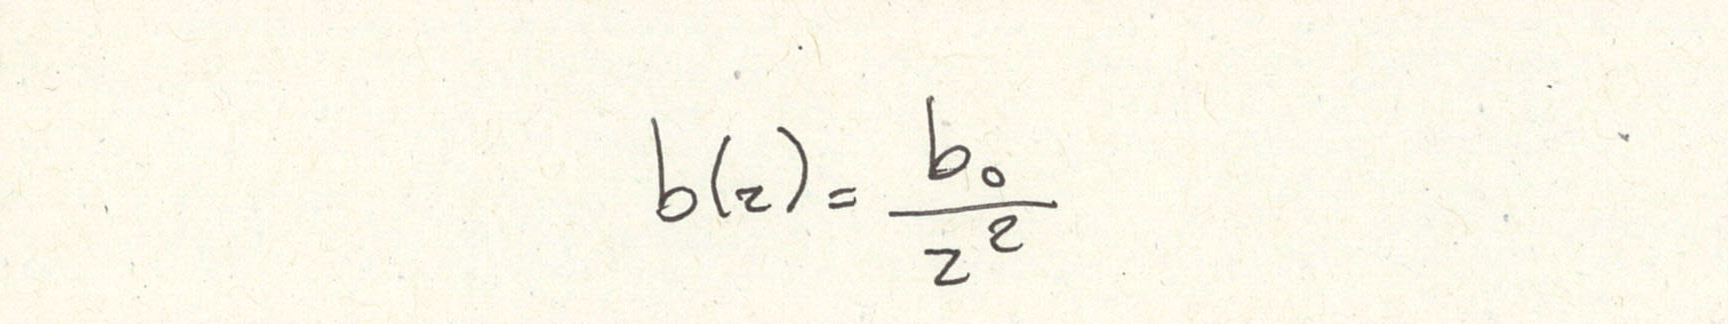 b(z) = b₀ / z²